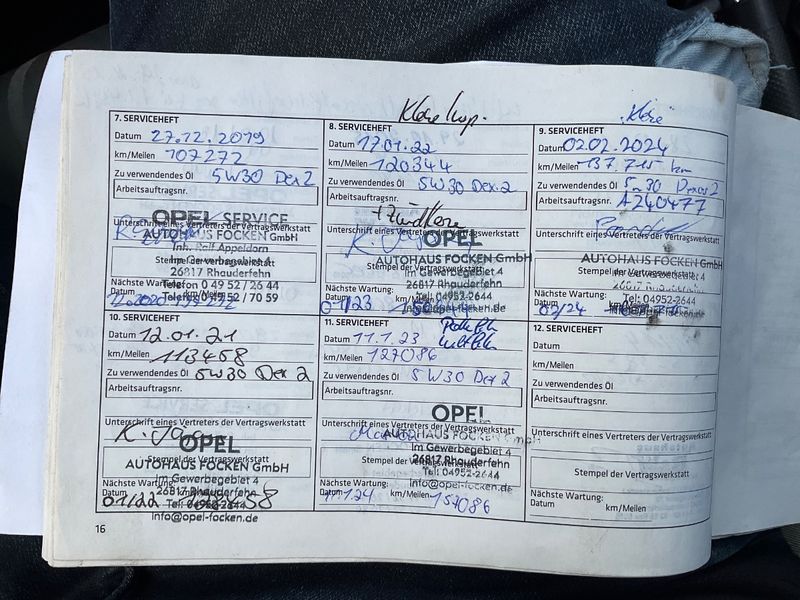 7. SERVICEHEFT
Datum 27.12.2019
km/Meilen 107272
Zu verwendendes Öl 5W30 Dex2
Arbeitsauftragsnr.
Unterschrift eines Vertreters der Vertragswerkstatt
OPEL SERVICE
AUTOHAUS FOCKEN GmbH
Inh. Ralf Appeldorn
Im Gewerbegebiet 4
Stempel der Vertragswerkstatt
26817 Rhauderfehn
Nächste Wartung: Telefon 0 49 52 / 26 44
Datum km/Meilen Telefax 0 49 52 / 70 59
12.2020
8. SERVICEHEFT
Datum 17.01.22
km/Meilen 120344
Zu verwendendes Öl 5W30 Dex.2
Arbeitsauftragsnr.
Unterschrift eines Vertreters der Vertragswerkstatt
OPEL
AUTOHAUS FOCKEN GmbH
Im Gewerbegebiet 4
Stempel der Vertragswerkstatt
26817 Rhauderfehn
Nächste Wartung: Tel. 04952-2644
Datum km/Meilen info@opel-focken.de
01/23
9. SERVICEHEFT
Datum 02.02.2024
km/Meilen 137.715 km
Zu verwendendes Öl 5w30 Dexos2
Arbeitsauftragsnr. A240477
Unterschrift eines Vertreters der Vertragswerkstatt
AUTOHAUS FOCKEN GmbH
Im Gewerbegebiet 4
Stempel der Vertragswerkstatt
Nächste Wartung: Tel: 04952-2644
Datum km/Meilen info@opel-focken.de
02/24
10. SERVICEHEFT
Datum 12.01.21
km/Meilen 113458
Zu verwendendes Öl 5W30 Dex 2
Arbeitsauftragsnr.
Unterschrift eines Vertreters der Vertragswerkstatt
OPEL
AUTOHAUS FOCKEN GmbH
Stempel der Vertragswerkstatt
Im Gewerbegebiet 4
26817 Rhauderfehn
Nächste Wartung:
Datum km/Meilen Tel: 04952-2644
01/22
info@opel-focken.de
11. SERVICEHEFT
Datum 11.1.23
km/Meilen 127086
Zu verwendendes Öl 5W30 Dex2
Arbeitsauftragsnr.
Unterschrift eines Vertreters der Vertragswerkstatt
OPEL
AUTOHAUS FOCKEN GmbH
Im Gewerbegebiet 4
Stempel der Vertragswerkstatt
26817 Rhauderfehn
Tel: 04952-2644
Nächste Wartung: info@opel-focken.de
Datum 11.1.24 km/Meilen 157086
12. SERVICEHEFT
Datum
km/Meilen
Zu verwendendes Öl
Arbeitsauftragsnr.
Unterschrift eines Vertreters der Vertragswerkstatt
Stempel der Vertragswerkstatt
Nächste Wartung:
Datum km/Meilen
16